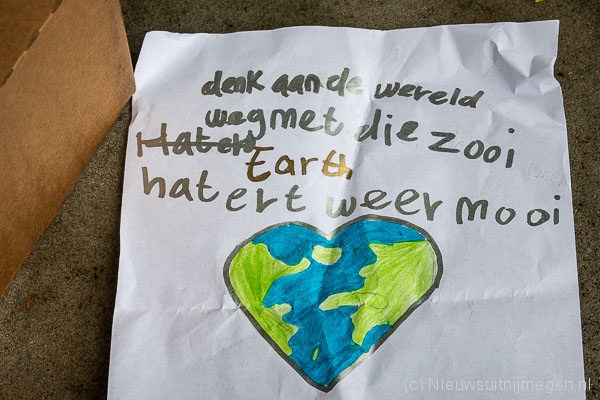 denk aan de wereld
weg met die zooi
Hatert
Earth
hatert weer mooi
(c) Nieuwsuitnijmegen.nl